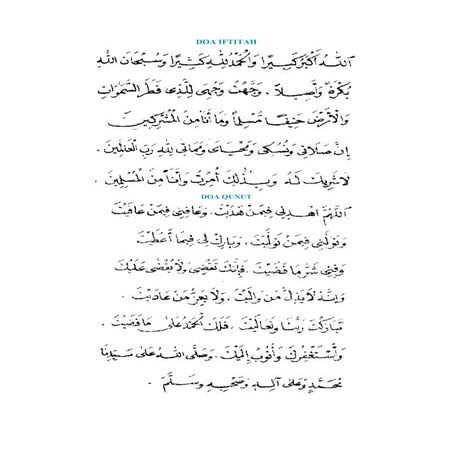 DOA IFTITAH
اَللهُ اَكْبَرُ كَبِيْرًا وَالْحَمْدُ لِلّٰهِ كَثِيْرًا وَسُبْحَانَ اللهِ
بُكْرَةً وَأَصِيْلًا . وَجَّهْتُ وَجْهِيَ لِلَّذِيْ فَطَرَ السَّمٰوَاتِ
وَالْأَرْضَ حَنِيْفًا مُسْلِمًا وَمَا أَنَا مِنَ الْمُشْرِكِيْنَ
إِنَّ صَلَاتِيْ وَنُسُكِيْ وَمَحْيَايَ وَمَمَاتِيْ لِلّٰهِ رَبِّ الْعَالَمِيْنَ .
لَا شَرِيْكَ لَهُ وَبِذٰلِكَ أُمِرْتُ وَأَنَا مِنَ الْمُسْلِمِيْنَ .
DOA QUNUT
اَللّٰهُمَّ اهْدِنِيْ فِيْمَنْ هَدَيْتَ . وَعَافِنِيْ فِيْمَنْ عَافَيْتَ
وَتَوَلَّنِيْ فِيْمَنْ تَوَلَّيْتَ . وَبَارِكْ لِيْ فِيْمَا أَعْطَيْتَ
وَقِنِيْ شَرَّ مَا قَضَيْتَ . فَإِنَّكَ تَقْضِيْ وَلَا يُقْضٰى عَلَيْكَ
وَإِنَّهُ لَا يَذِلُّ مَنْ وَالَيْتَ . وَلَا يَعِزُّ مَنْ عَادَيْتَ .
تَبَارَكْتَ رَبَّنَا وَتَعَالَيْتَ . فَلَكَ الْحَمْدُ عَلٰى مَا قَضَيْتَ .
وَأَسْتَغْفِرُكَ وَأَتُوْبُ إِلَيْكَ . وَصَلَّى اللهُ عَلٰى سَيِّدِنَا
مُحَمَّدٍ وَعَلٰى آلِهِ وَصَحْبِهِ وَسَلَّمَ .